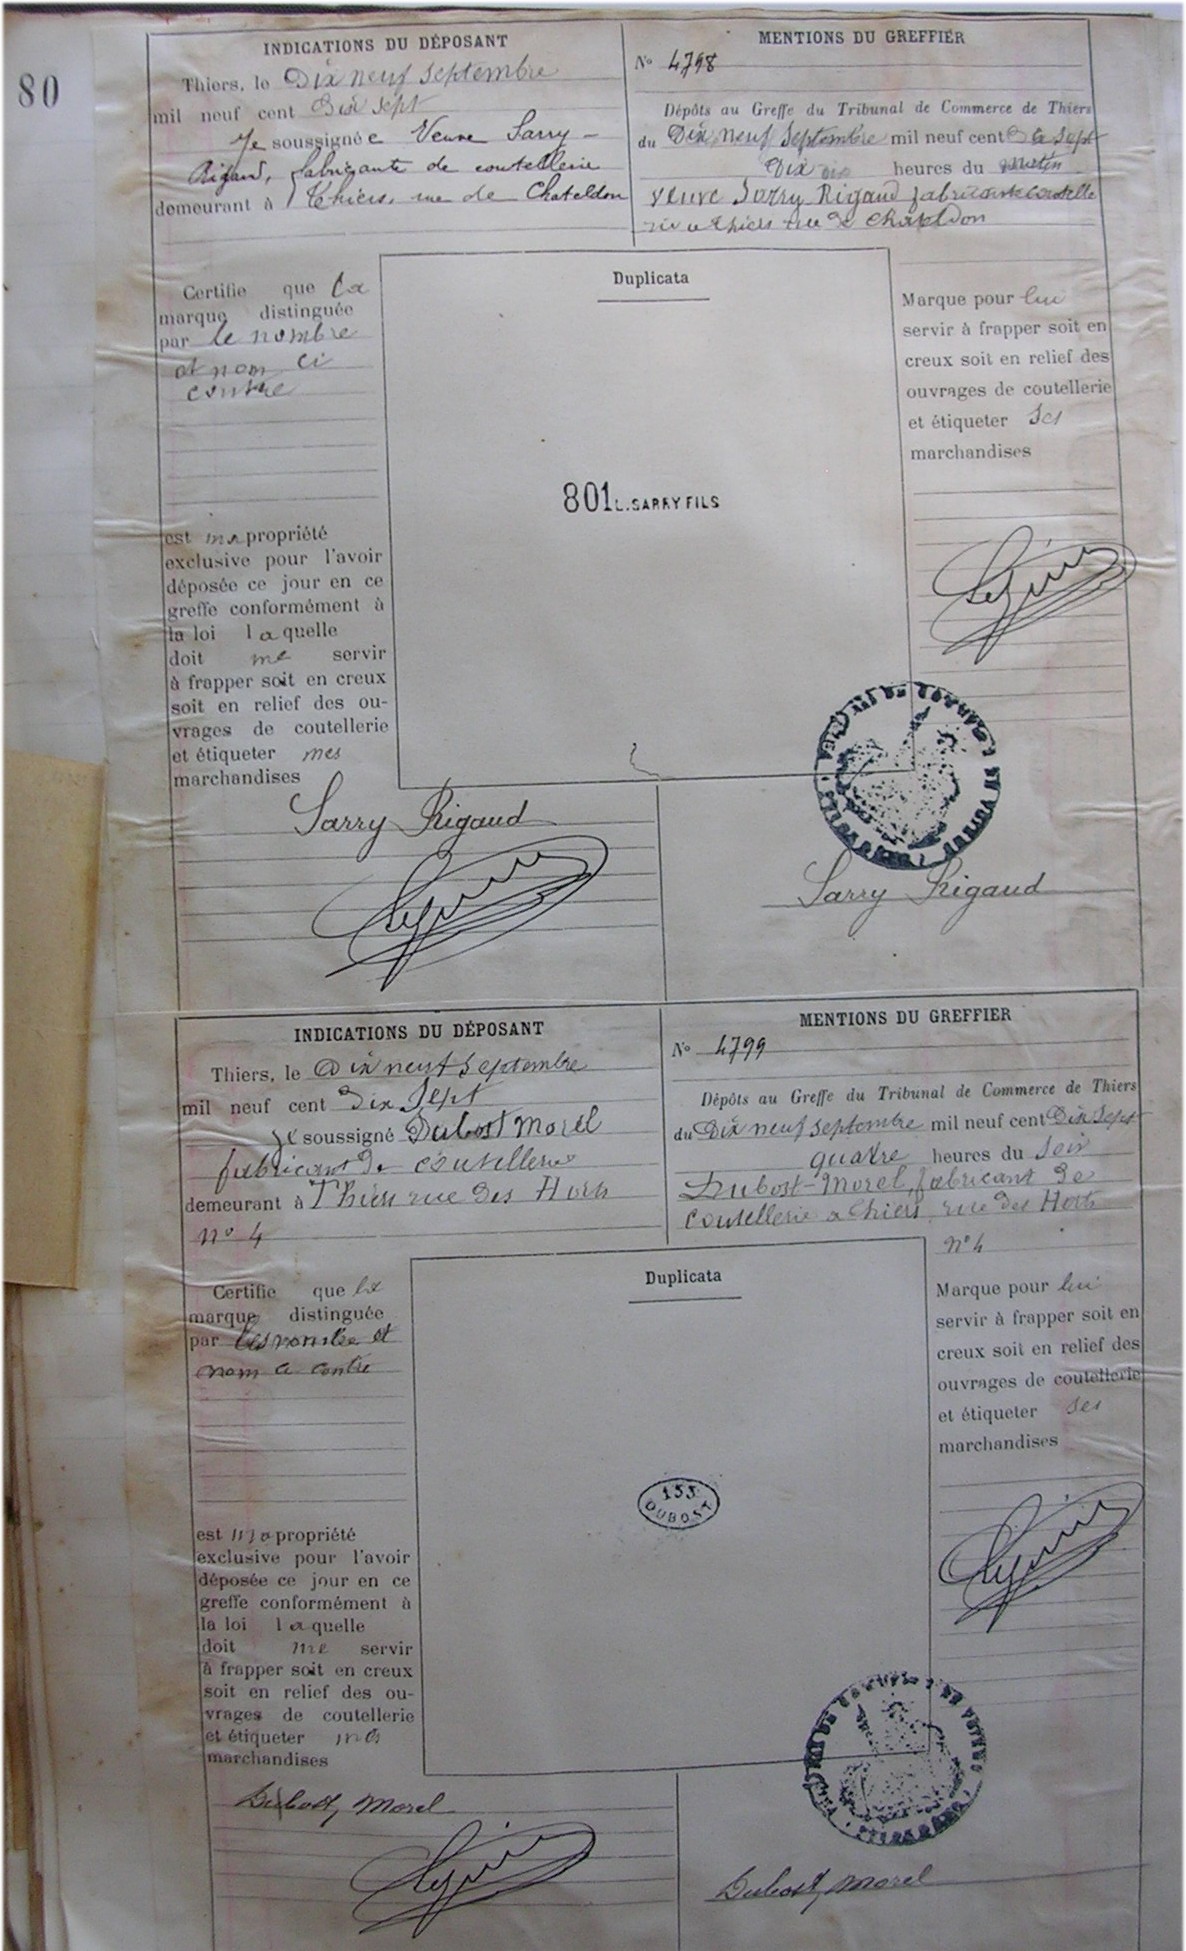 80
INDICATIONS DU DÉPOSANT
Thiers, le Dix neuf Septembre
mil neuf cent Dix sept
Je soussignée Veuve Sarry-
Rigaud, fabricante de coutellerie
demeurant à Thiers, rue de Chateldon
MENTIONS DU GREFFIER
No 4798
Dépôts au Greffe du Tribunal de Commerce de Thiers
du Dix neuf Septembre mil neuf cent Dix sept
Dix heures du matin
veuve Sarry Rigaud fabricante coutelle
rie a Thiers rue de Chateldon
Certifie que la
marque distinguée
par le nombre
et nom ci
contre
est ma propriété
exclusive pour l'avoir
déposée ce jour en ce
greffe conformément à
la loi laquelle
doit me servir
à frapper soit en creux
soit en relief des ou-
vrages de coutellerie
et étiqueter mes
marchandises
Duplicata
801 L. SARRY FILS
Marque pour lui
servir à frapper soit en
creux soit en relief des
ouvrages de coutellerie
et étiqueter ses
marchandises
Sarry Rigaud
Sarry Rigaud
INDICATIONS DU DÉPOSANT
Thiers, le Dix neuf Septembre
mil neuf cent Dix Sept
je soussigné Dubost Morel
fabricant de coutellerie
demeurant à Thiers rue des Horts
n° 4
MENTIONS DU GREFFIER
No 4799
Dépôts au Greffe du Tribunal de Commerce de Thiers
du Dix neuf septembre mil neuf cent Dix Sept
quatre heures du soir
Dubost-Morel, fabricant de
coutellerie a Thiers rue des Horts
n° 4
Certifie que la
marque distinguée
par les nombre et
nom ci contre
est ma propriété
exclusive pour l'avoir
déposée ce jour en ce
greffe conformément à
la loi laquelle
doit me servir
à frapper soit en creux
soit en relief des ou-
vrages de coutellerie
et étiqueter mes
marchandises
Duplicata
153
DUBOST
Marque pour lui
servir à frapper soit en
creux soit en relief des
ouvrages de coutellerie
et étiqueter ses
marchandises
Dubost, Morel
Dubost, Morel